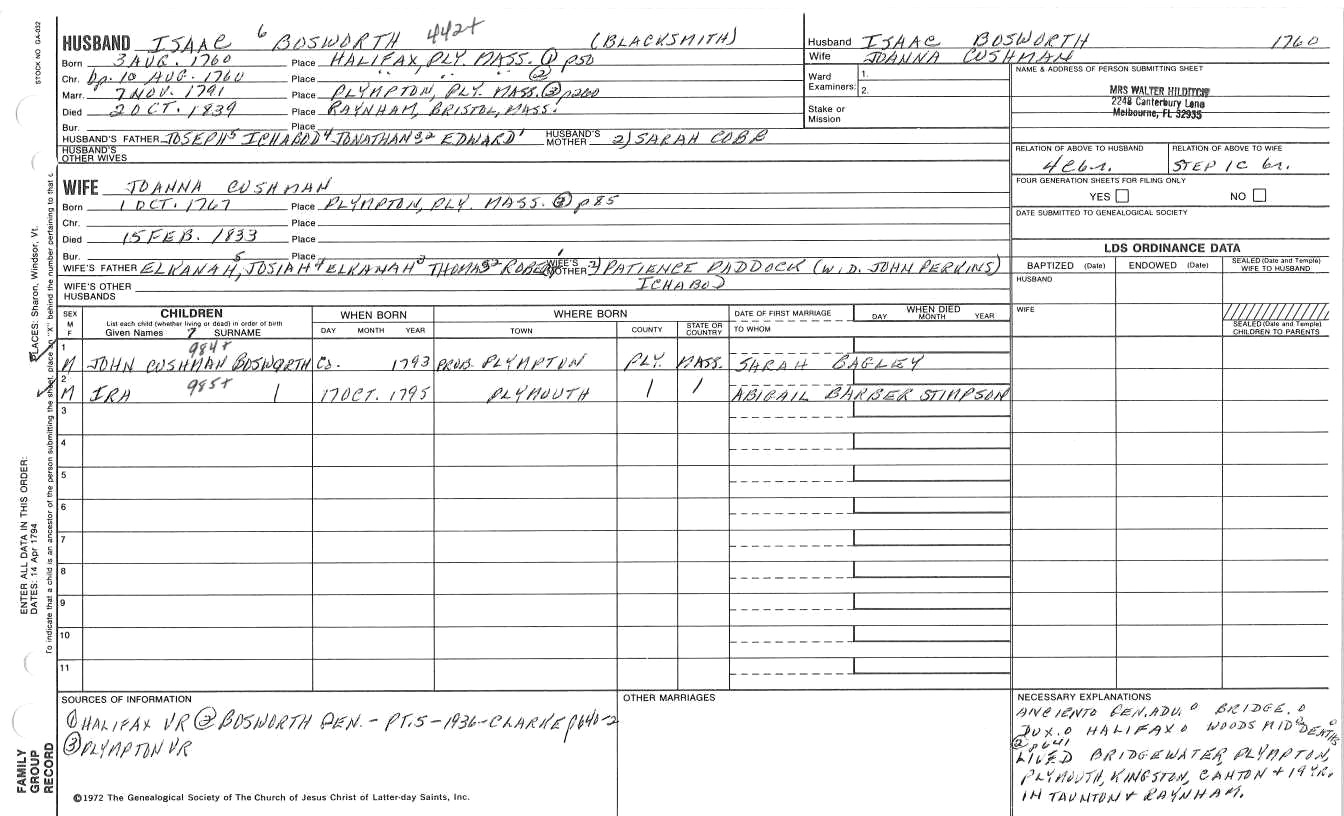 STOCK NO. GA-032
HUSBAND ISAAC 6 BOSWORTH 442+ (BLACKSMITH)
Born 3 AUG. 1760 Place HALIFAX, PLY. MASS. ① p50
Chr. bp. 10 AUG. 1760 Place " " " ②
Marr. 7 NOV. 1791 Place PLYMPTON, PLY. MASS. ③ p260
Died 2 OCT. 1839 Place RAYNHAM, BRISTOL, MASS.
Bur. Place
HUSBAND'S FATHER JOSEPH5 ICHABOD4 JONATHAN32 EDWARD1 HUSBAND'S MOTHER 2) SARAH COBB
HUSBAND'S OTHER WIVES
WIFE JOANNA CUSHMAN
Born 1 OCT. 1767 Place PLYMPTON, PLY. MASS. ③ p85
Chr. Place
Died 15 FEB. 1833 Place
Bur. Place
WIFE'S FATHER ELKANAH5, JOSIAH4 ELKANAH3 THOMAS2 ROBERT1 WIFE'S MOTHER 2) PATIENCE PADDOCK (W.D. JOHN PERKINS)
ICHABOD
WIFE'S OTHER HUSBANDS
Husband ISAAC BOSWORTH 1760
Wife JOANNA CUSHMAN
Ward Examiners: 1.
2.
Stake or Mission
NAME & ADDRESS OF PERSON SUBMITTING SHEET
MRS WALTER HILDITCH
2248 Canterbury Lane
Melbourne, FL 32935
RELATION OF ABOVE TO HUSBAND RELATION OF ABOVE TO WIFE
4C6r. STEP 1C 6r.
FOUR GENERATION SHEETS FOR FILING ONLY
YES NO
DATE SUBMITTED TO GENEALOGICAL SOCIETY
LDS ORDINANCE DATA
BAPTIZED (Date) ENDOWED (Date) SEALED (Date and Temple) WIFE TO HUSBAND
HUSBAND
WIFE
SEALED (Date and Temple) CHILDREN TO PARENTS
SEX M F CHILDREN List each child (whether living or dead) in order of birth Given Names 7 SURNAME
WHEN BORN DAY MONTH YEAR
WHERE BORN TOWN COUNTY STATE OR COUNTRY
DATE OF FIRST MARRIAGE TO WHOM
WHEN DIED DAY MONTH YEAR
1 M JOHN CUSHMAN BOSWORTH 984+ Cs. 1793 PROB. PLYMPTON PLY. MASS. SARAH BAGLEY
2 M IRA 985+ 17 OCT. 1795 PLYMOUTH ABIGAIL BARBER STIMPSON
3
4
5
6
7
8
9
10
11
SOURCES OF INFORMATION
① HALIFAX VR ② BOSWORTH GEN. - PT. 5 - 1936 - CLARKE p640-2
③ PLYMPTON VR
OTHER MARRIAGES
NECESSARY EXPLANATIONS
ANCIENTO GEN. ADV. 0 BRIDGE. 0
DUX. 0 HALIFAX 0 WOODS MID 0 DEATHS 0
② p641
LIVED BRIDGEWATER, PLYMPTON,
PLYMOUTH, KINGSTON, CANTON + 19 YR.
IN TAUNTON + RAYNHAM.
©1972 The Genealogical Society of The Church of Jesus Christ of Latter-day Saints, Inc.
FAMILY GROUP RECORD
ENTER ALL DATA IN THIS ORDER:
DATES: 14 Apr 1794
PLACES: Sharon, Windsor, Vt.
To indicate that a child is an ancestor of the person submitting the sheet, place an "X" behind the number pertaining to that c.